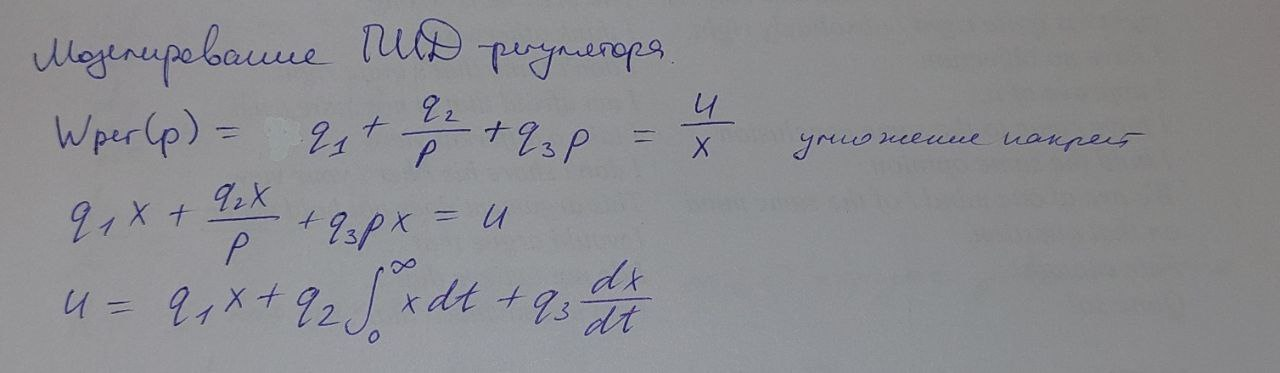 Моделирование ПИД-регулятора.
Wрег(p) = q₁ + q₂/p + q₃p = u/x умножение накрест
q₁x + q₂x/p + q₃px = u
u = q₁x + q₂∫₀^∞ x dt + q₃ dx/dt